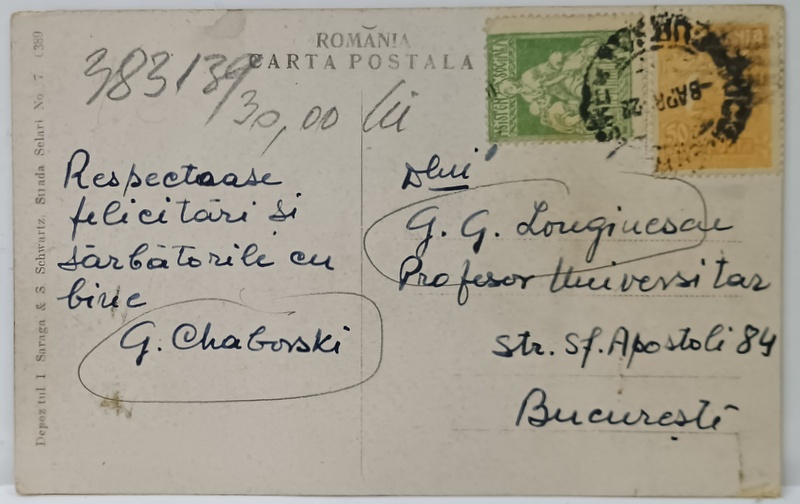 ROMÂNIA
CARTA POSTALA
383139
30,00 lei
50
8 APR
Respectoase
felicitări și
sărbătorile cu
bine
G. Chaborski
Dlui
G. G. Longinescu
Profesor Universitar
str. Sf. Apostoli 84
București
Depozitul I Saraga & S. Schwartz, Strada Selari No. 7